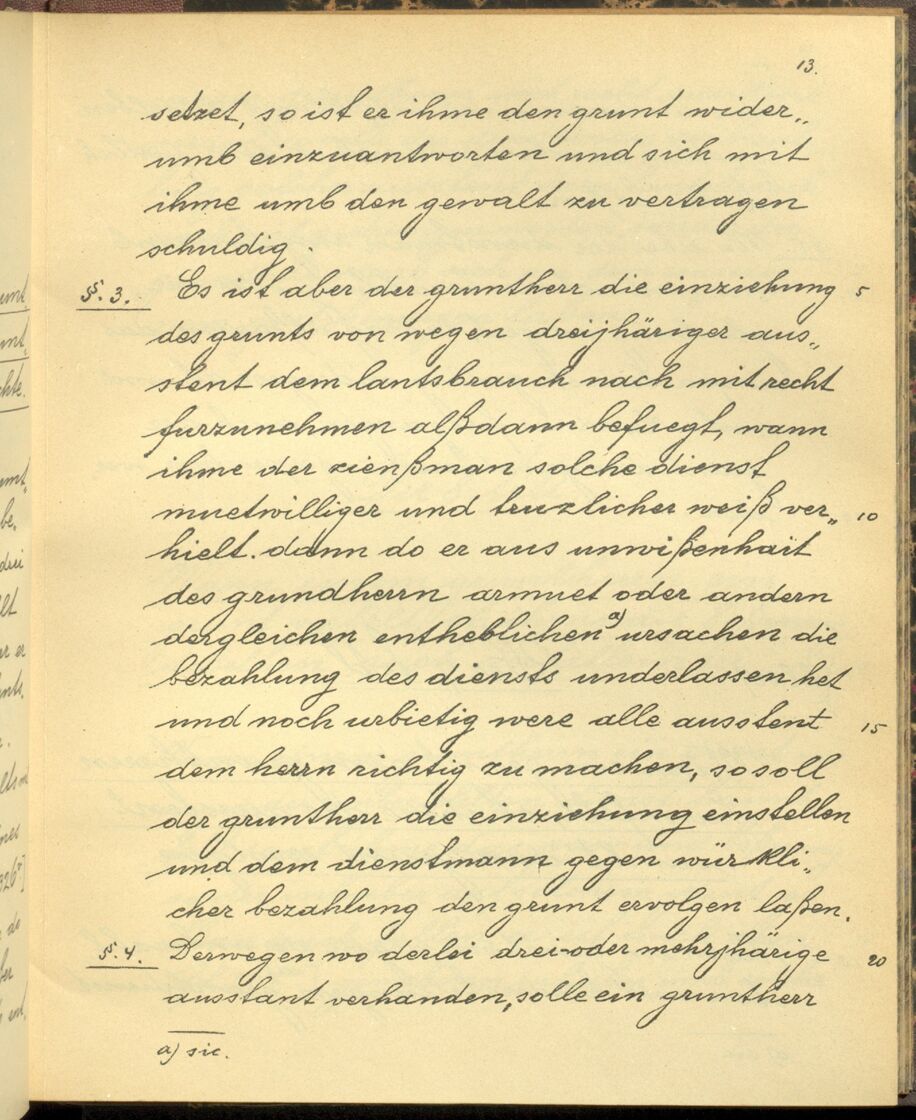 13.
setzet, so ist er ihme den grunt wider„
umb einzuantworten und sich mit
ihme umb den gewalt zu vertragen
schuldig.
§. 3. Es ist aber der gruntherr die einziehung 5
des grunts von wegen dreijhäriger aus„
stent dem lantsbrauch nach mit recht
furzunehmen alßdann befuegt, wann
ihme der zienßman solche dienst
muetwilliger und truzlicher weiß ver„ 10
hielt. dann do er aus unwißenhait
des grundherrn armuet oder andern
dergleichen entheblichen a) ursachen die
bezahlung des diensts underlassen het
und noch urbietig were alle ausstent 15
dem herrn richtig zu machen, so soll
der gruntherr die einziehung einstellen
und dem dienstmann gegen würkli„
cher bezahlung den grunt ervolgen laßen.
§. 4. Derwegen wo derlei drei-oder mehrjhärige 20
ausstant verhanden, solle ein gruntherr
a) sic.